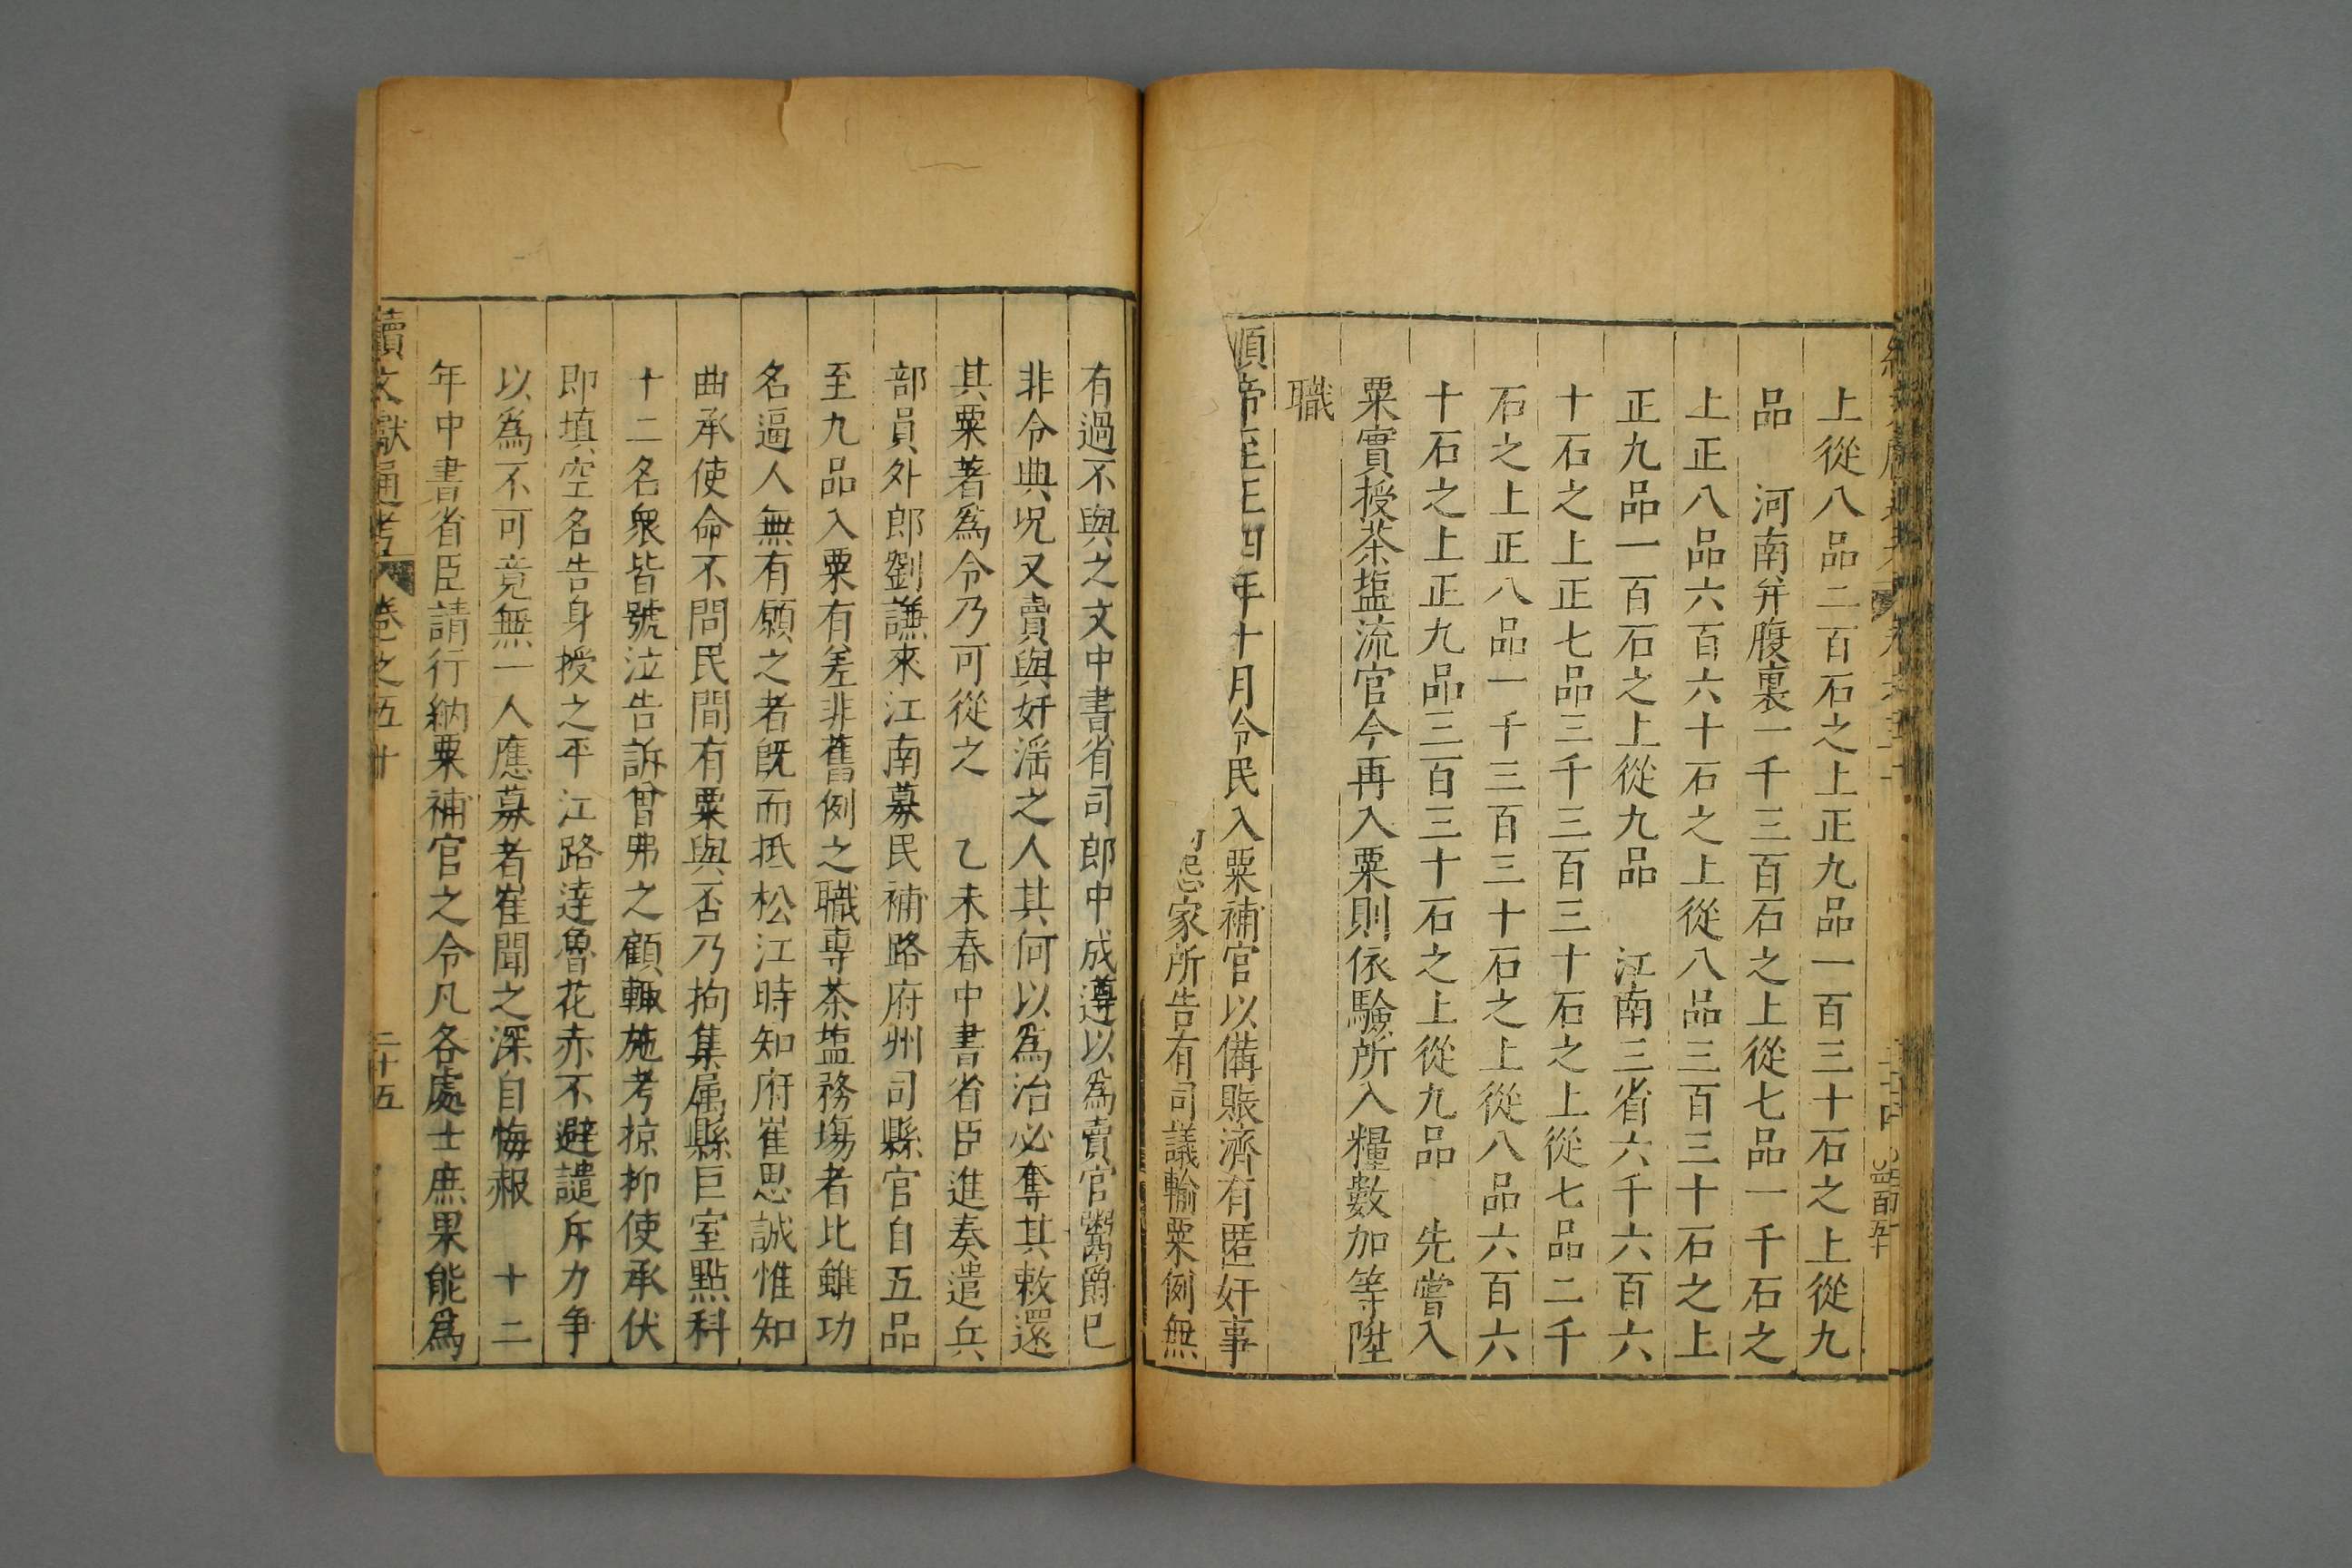 上從八品二百石之上正九品一百三十石之上從九
品　河南并腹裏一千三百石之上從七品一千石之
上正八品六百六十石之上從八品三百三十石之上
正九品一百石之上從九品　江南三省六千六百六
十石之上正七品三千三百三十石之上從七品二千
石之上正八品一千三百三十石之上從八品六百六
十石之上正九品三百三十石之上從九品　先嘗入
粟實授茶塩流官今再入粟則依驗所入糧數加等陞
職
順帝至正四年十月令民入粟補官以備賑濟有匿奸事
怨家所告有司議輸粟例無
有過不與之文中書省司郎中成遵以為賣官鬻爵已
非令典況又賣與奸淫之人其何以為治必奪其敕還
其粟著為令乃可從之　乙未春中書省臣進奏遣兵
部員外郎劉謙來江南募民補路府州司縣官自五品
至九品入粟有差非舊例之職專茶塩務場者比雖功
名逼人無有願之者既而抵松江時知府崔思誠惟知
曲承使命不問民間有粟與否乃拘集属縣巨室點科
十二名衆皆號泣告訴曾弗之顧輙施考掠抑使承伏
即填空名告身授之平江路達魯花赤不避譴斥力争
以為不可竟無一人應募者崔聞之深自悔赧　十二
年中書省臣請行納粟補官之令凡各處士庶果能為
續文獻通考　卷之五十　二十五